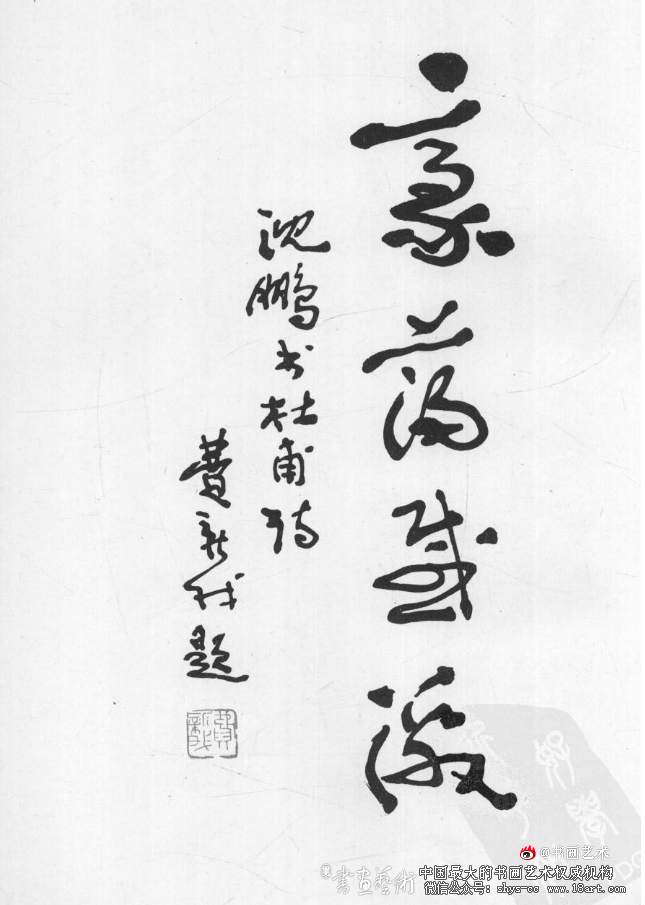 豪荡感激
沈鹏书杜甫诗
费新我题
費新我
@书画艺术
書画藝術
中国最大的书画艺术权威机构
微信公众号：shys-cc www.18art.com